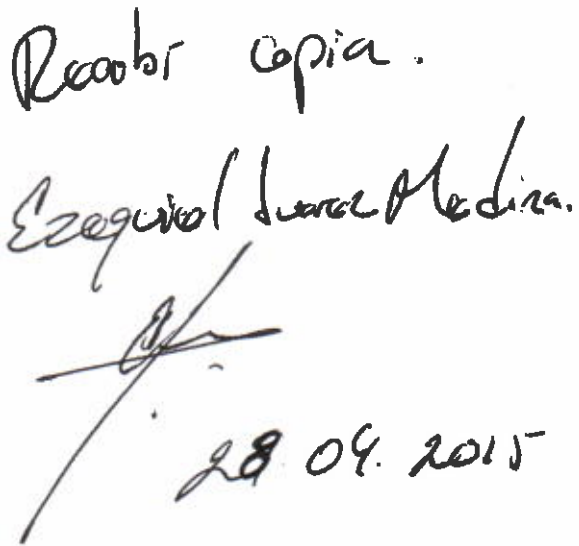 Recibi copia.
Ezequiel Juarez Medina.
28 04. 2015